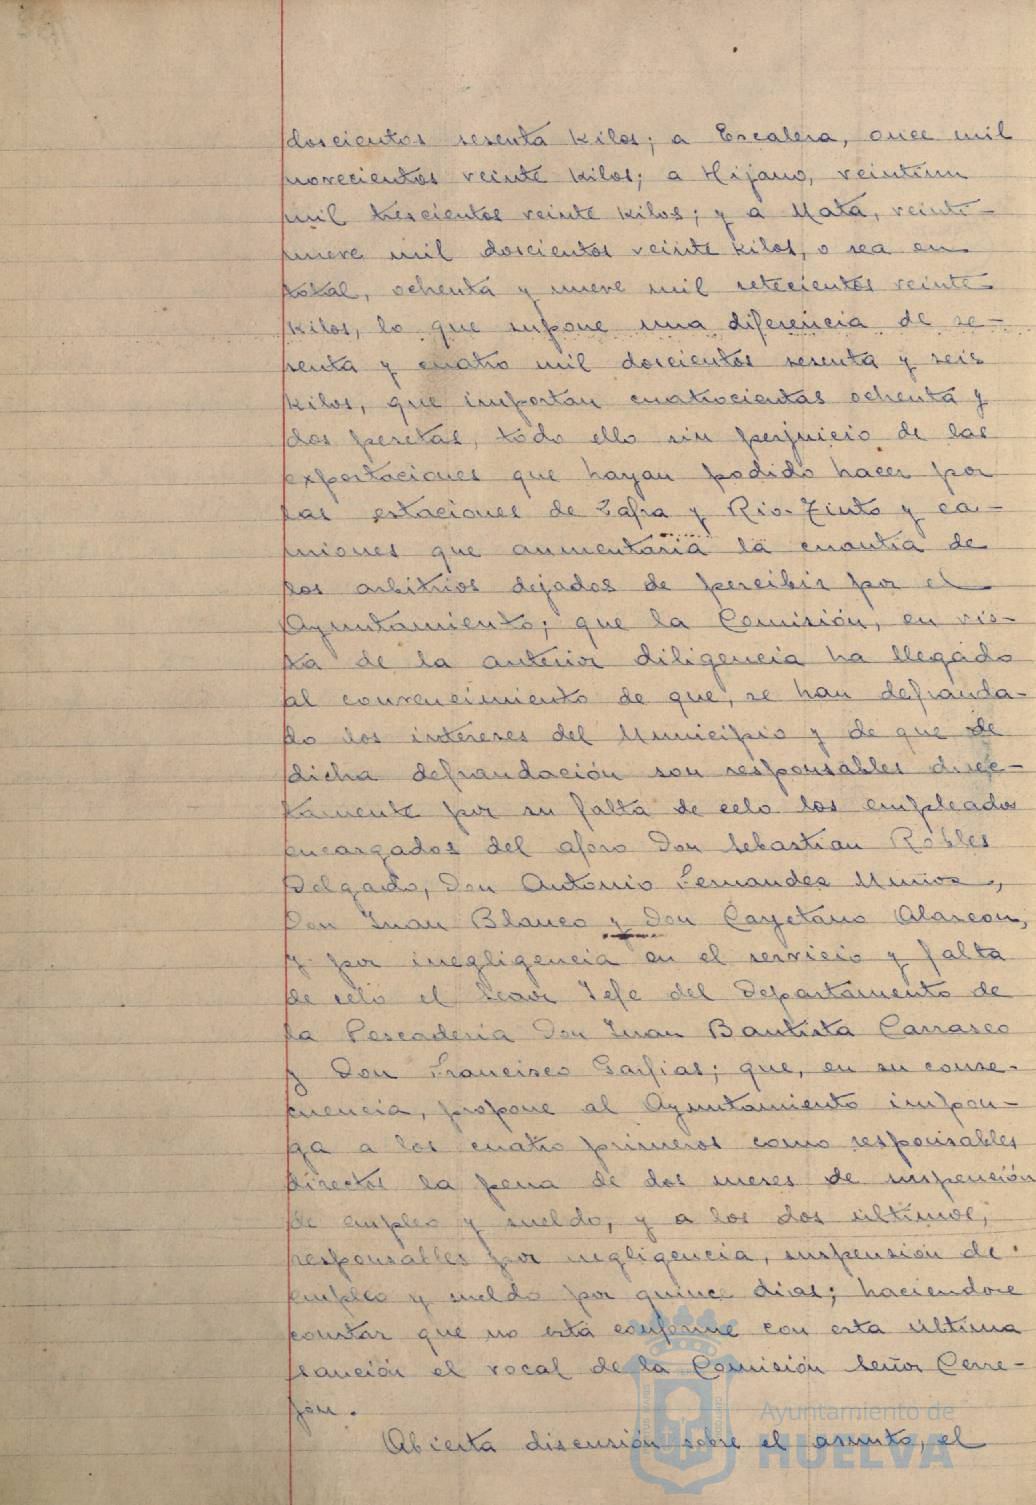 doscientos sesenta kilos; a Escalera, once mil
novecientos veinte kilos; a Hijano, veintiun
mil trescientos veinte kilos; y a Mata, veinti-
nueve mil doscientos veinte kilos, o sea en
total, ochenta y nueve mil setecientos veinte
kilos, lo que supone una diferencia de se-
senta y cuatro mil doscientos sesenta y seis
kilos, que importan cuatrocientas ochenta y
dos pesetas, todo ello sin perjuicio de las
exportaciones que hayan podido hacer por
las estaciones de Zafra y Rio-Tinto y ca-
miones que aumentaria la cuantia de
los arbitrios dejados de percibir por el
Ayuntamiento; que la Comisión, en vis-
ta de la anterior diligencia ha llegado
al convencimiento de que, se han defrauda-
do los intereses del Municipio y de que de
dicha defraudación son responsables direc-
tamente por su falta de celo los empleados
encargados del aforo Don Sebastian Robles
Delgado, Don Antonio Fernandez Muñoz,
Don Juan Blanco y Don Cayetano Alarcon,
y por inegligencia en el servicio y falta
de celo el Señor Jefe del Departamento de
la Pescadería Don Juan Bautista Carrasco
y Don Francisco Garfias; que, en su conse-
cuencia, propone al Ayuntamiento impon-
ga a los cuatro primeros como responsables
directos la pena de dos meses de suspensión
de empleo y sueldo, y a los dos ultimos,
responsables por negligencia, suspensión de
empleo y sueldo por quince dias; haciendose
constar que no está conforme con esta última
sanción el vocal de la Comisión Señor Cerre-
jon.
Abierta discusión sobre el asunto, el
Ayuntamiento de
HUELVA